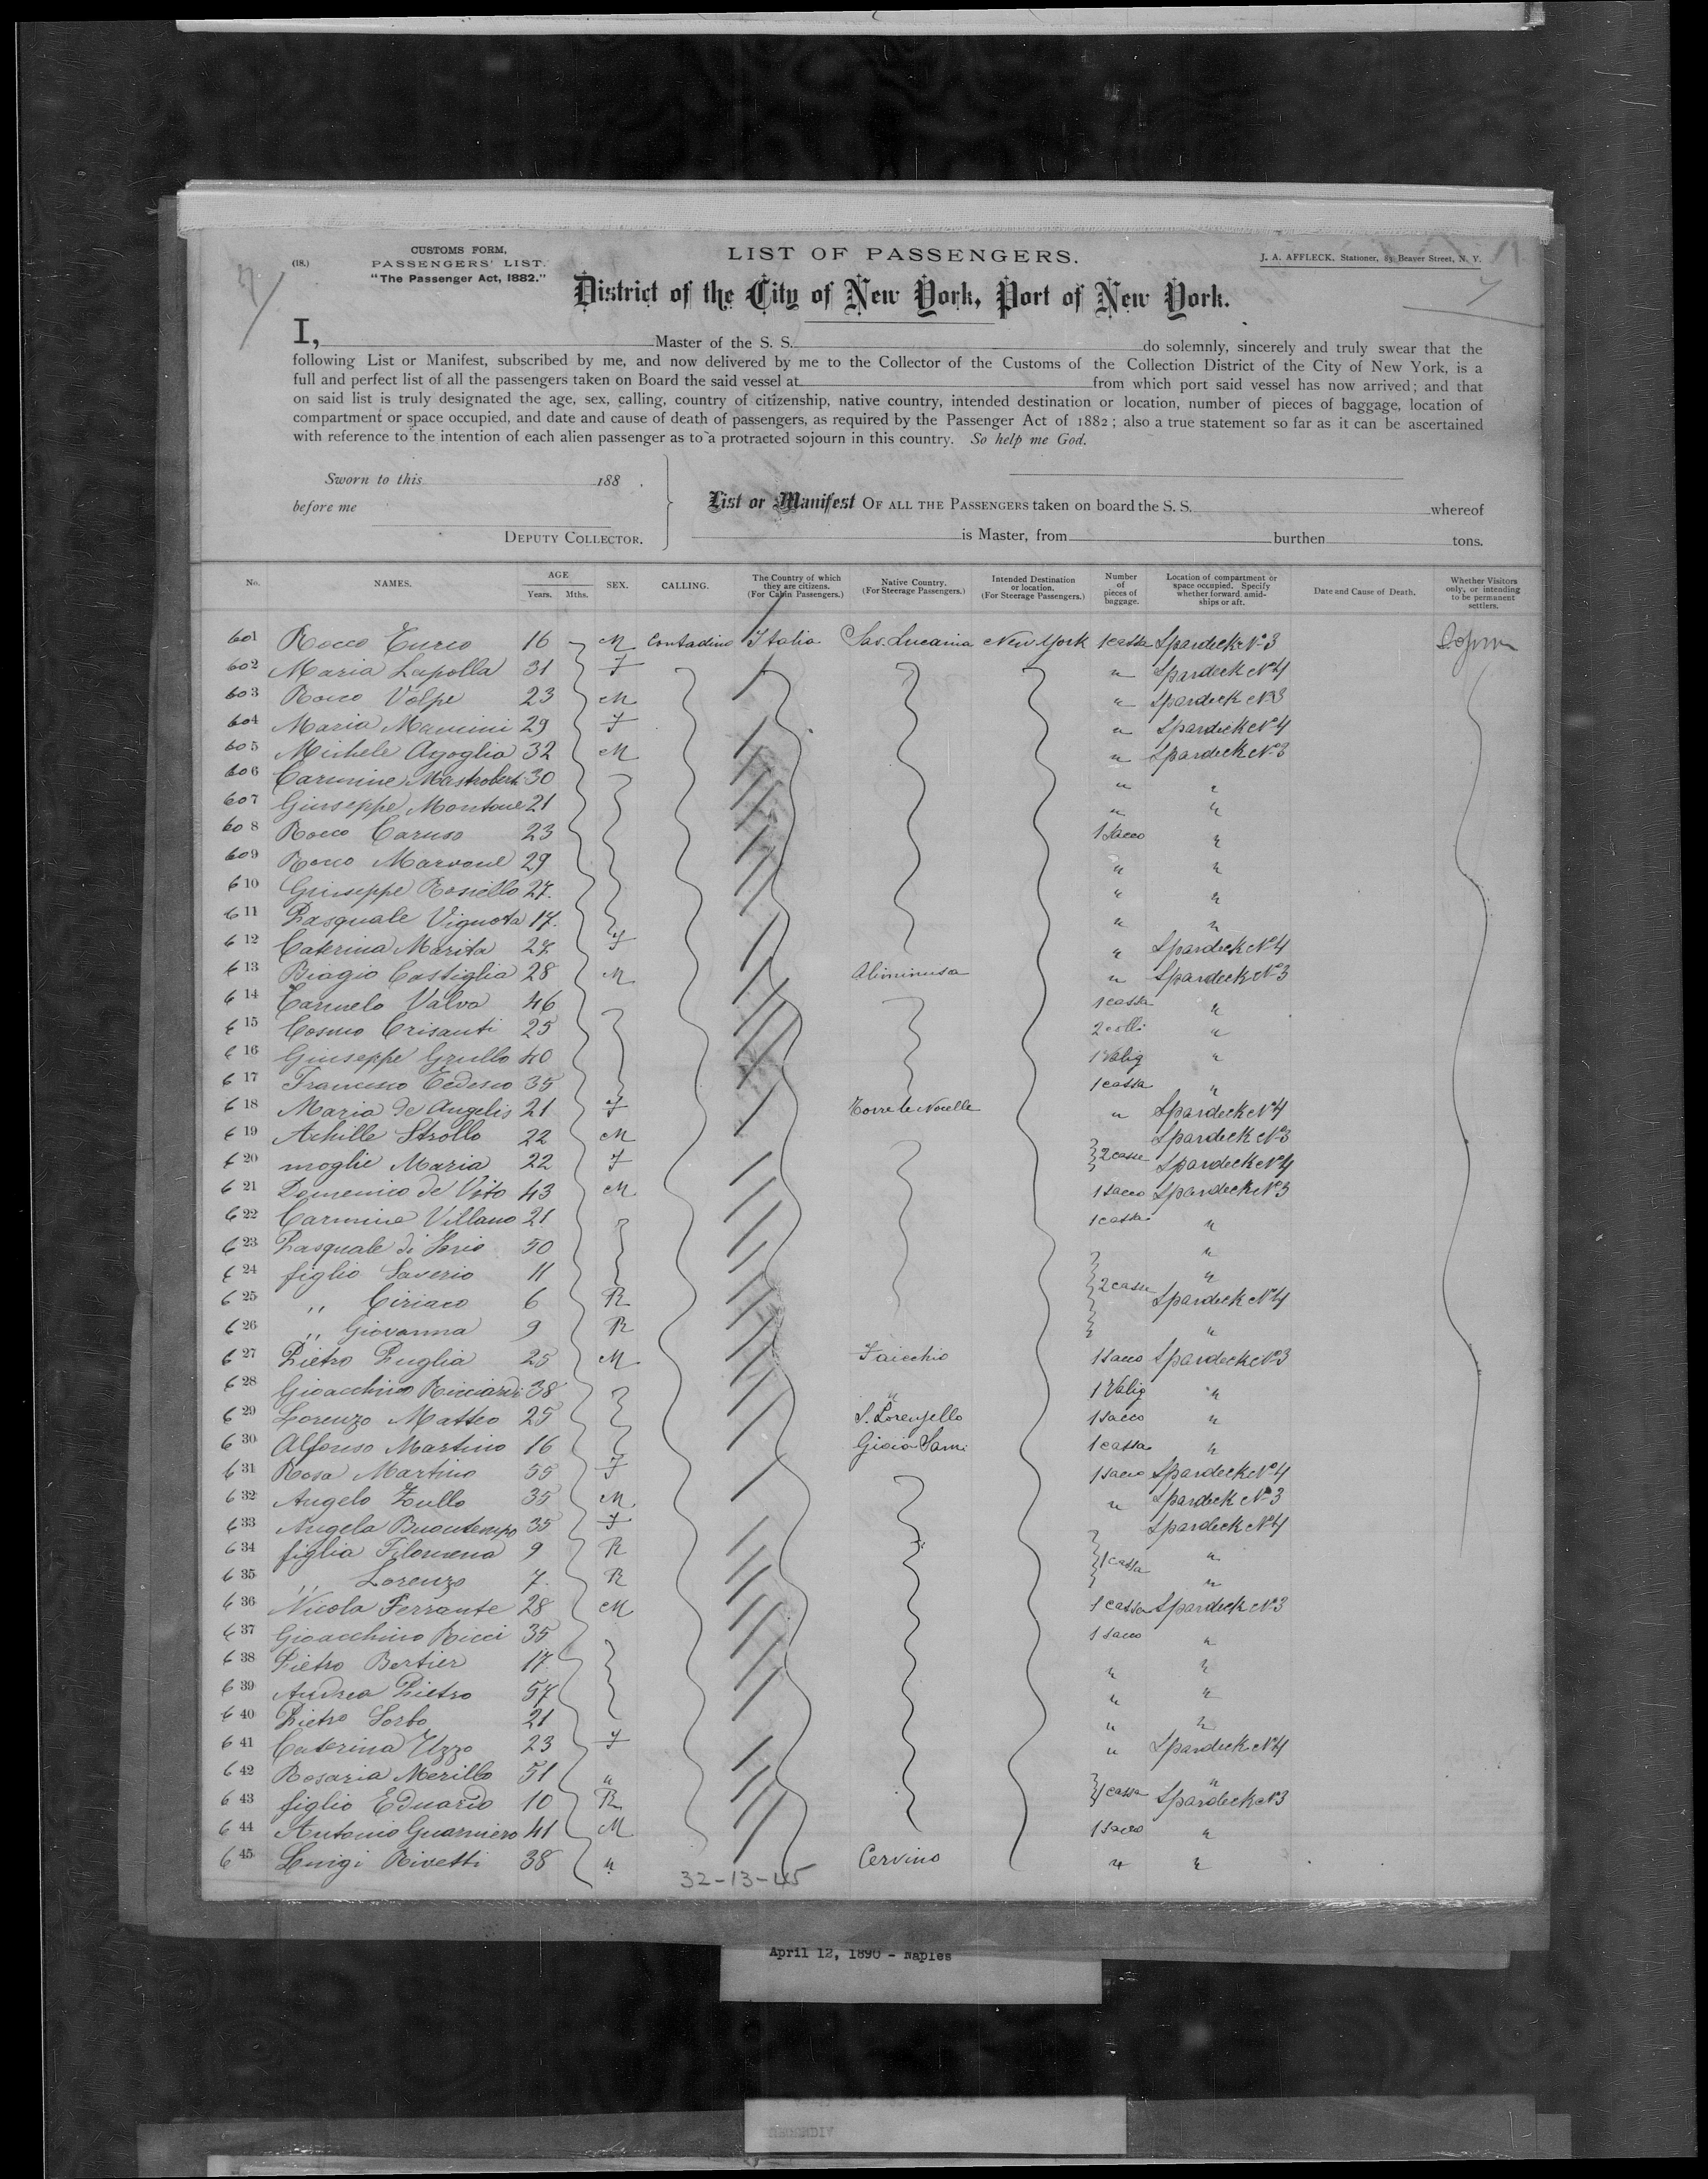 (18.)
CUSTOMS FORM,
PASSENGERS' LIST.
"The Passenger Act, 1882."
LIST OF PASSENGERS.
J. A. AFFLECK, Stationer, 85 Beaver Street, N. Y.
7
District of the City of New York, Port of New York.
I, Master of the S. S. do solemnly, sincerely and truly swear that the
following List or Manifest, subscribed by me, and now delivered by me to the Collector of the Customs of the Collection District of the City of New York, is a
full and perfect list of all the passengers taken on Board the said vessel at from which port said vessel has now arrived; and that
on said list is truly designated the age, sex, calling, country of citizenship, native country, intended destination or location, number of pieces of baggage, location of
compartment or space occupied, and date and cause of death of passengers, as required by the Passenger Act of 1882; also a true statement so far as it can be ascertained
with reference to the intention of each alien passenger as to a protracted sojourn in this country. So help me God.
Sworn to this 188 .
before me
DEPUTY COLLECTOR.
List or Manifest OF ALL THE PASSENGERS taken on board the S. S. whereof
is Master, from burthen tons.
No. NAMES. AGE Years. Mths. SEX. CALLING. The Country of which they are citizens. (For Cabin Passengers.) Native Country. (For Steerage Passengers.) Intended Destination or location. (For Steerage Passengers.) Number of pieces of baggage. Location of compartment or space occupied. Specify whether forward amid-ships or aft. Date and Cause of Death. Whether Visitors only, or intending to be permanent settlers.
601 Rocco Turco 16 M Contadino Italia Sav. Lucania New York 1 cassa Spardeck No 3
602 Maria Lapolla 31 F " Spardeck No 4
603 Rocco Volpe 23 M " Spardeck No 3
604 Maria Mancini 29 F " Spardeck No 4
605 Michele Agoglia 32 M " Spardeck No 3
606 Carmine Mastroberti 30 " "
607 Giuseppe Montone 21 " "
608 Rocco Caruso 23 1 Sacco "
609 Rocco Marrone 29 " "
610 Giuseppe Rosiello 27 " "
611 Pasquale Vignota 17 " "
612 Caterina Marita 27 F " Spardeck No 4
613 Biagio Castiglia 28 M Aliminusa " Spardeck No 3
614 Carmelo Valvo 46 1 cassa "
615 Cosmo Crisanti 25 2 colli "
616 Giuseppe Grullo 40 1 Valig "
617 Francesco Tedesco 35 1 cassa "
618 Maria de Angelis 21 F Torre le Nocelle " Spardeck No 4
619 Achille Strollo 22 M Spardeck No 3
620 moglie Maria 22 F 2 casse Spardeck No 4
621 Domenico de Vito 43 M 1 Sacco Spardeck No 3
622 Carmine Villano 21 1 cassa "
623 Pasquale di Iorio 50 "
624 figlio Saverio 11 2 casse "
625 " Ciriaco 6 R Spardeck No 4
626 " Giovanna 9 R "
627 Pietro Puglia 25 M Faicchio 1 Sacco Spardeck No 3
628 Gioacchino Ricciardi 38 " 1 Valig "
629 Lorenzo Matteo 25 S. Lorenzello 1 Sacco "
630 Alfonso Martino 16 Gioia Sann. 1 cassa "
631 Rosa Martino 55 F 1 sacco Spardeck No 4
632 Angelo Zullo 35 M " Spardeck No 3
633 Angela Buontempo 35 F Spardeck No 4
634 figlia Filomena 9 R 1 cassa "
635 " Lorenzo 7 R "
636 Nicola Ferrante 28 M 1 cassa Spardeck No 3
637 Gioacchino Ricci 35 1 Sacco "
638 Pietro Bertier 17 " "
639 Andrea Pietro 57 " "
640 Pietro Sorbo 21 " "
641 Caterina Uzzo 23 F " Spardeck No 4
642 Rosaria Merillo 51 " "
643 figlio Eduardo 10 R 1 cassa Spardeck No 3
644 Antonio Guarniero 41 M 1 Sacco "
645 Luigi Rivetti 38 " Cervino " "
32-13-45
April 12, 1890 - Naples